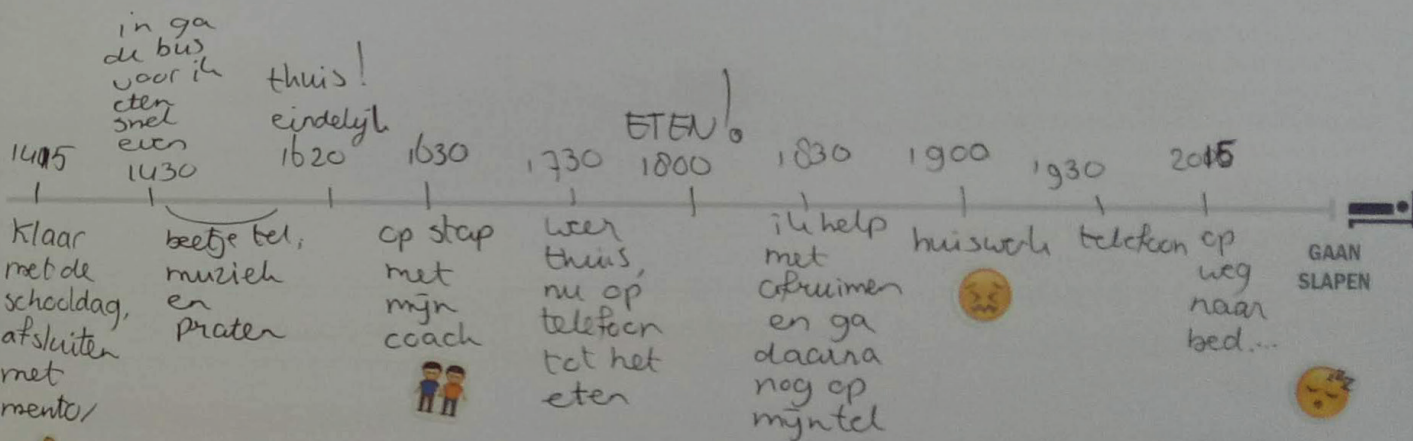 in ga
de bus
voor ik
eten
snel
even
thuis!
eindelijk
ETEN!
1415
1430
1620
1630
1730
1800
1830
1900
1930
2015
Klaar
met de
schooldag,
afsluiten
met
mentor
beetje tel,
muziek
en
praten
op stap
met
mijn
coach
weer
thuis,
nu op
telefoon
tot het
eten
ik help
met
afruimen
en ga
daarna
nog op
mijn tel
huiswerk
telefoon
op
weg
naar
bed...
GAAN
SLAPEN